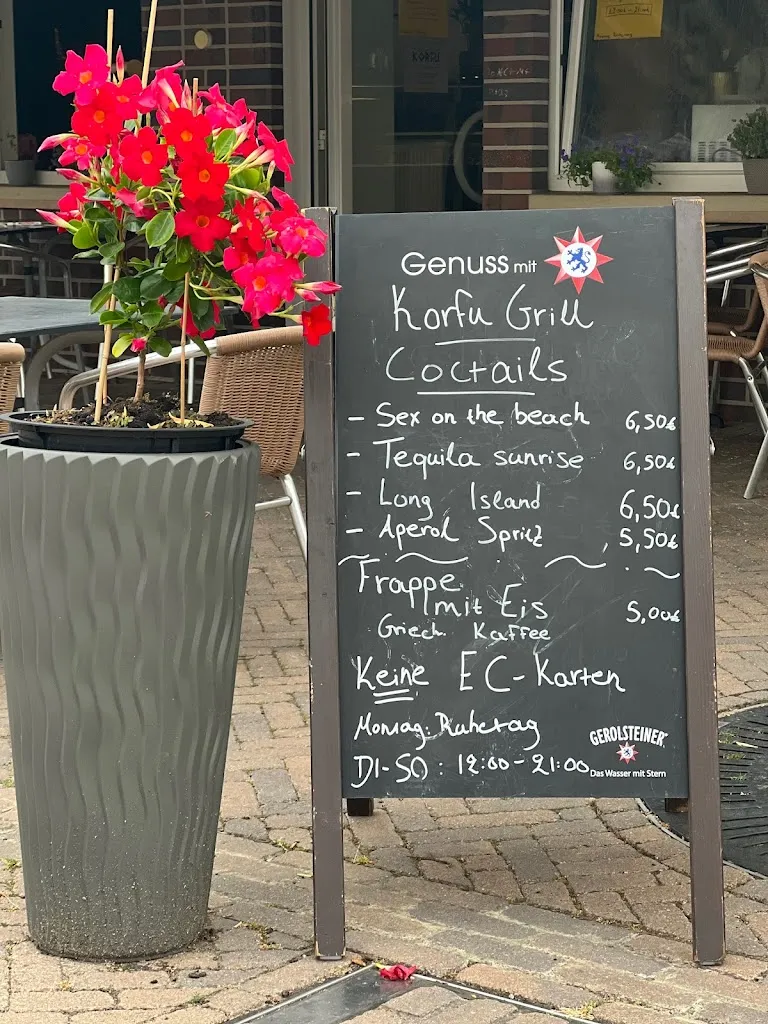 KORFU
Genuss mit
Korfu Grill
Coctails
- Sex on the beach 6,50€
- Tequila sunrise 6,50€
- Long Island 6,50€
- Aperol Spritz 5,50€
Frappe
mit Eis 5,00€
Griech. Kaffee
Keine EC-Karten
Montag: Ruhetag
DI-SO: 12:00-21:00
GEROLSTEINER
Das Wasser mit Stern